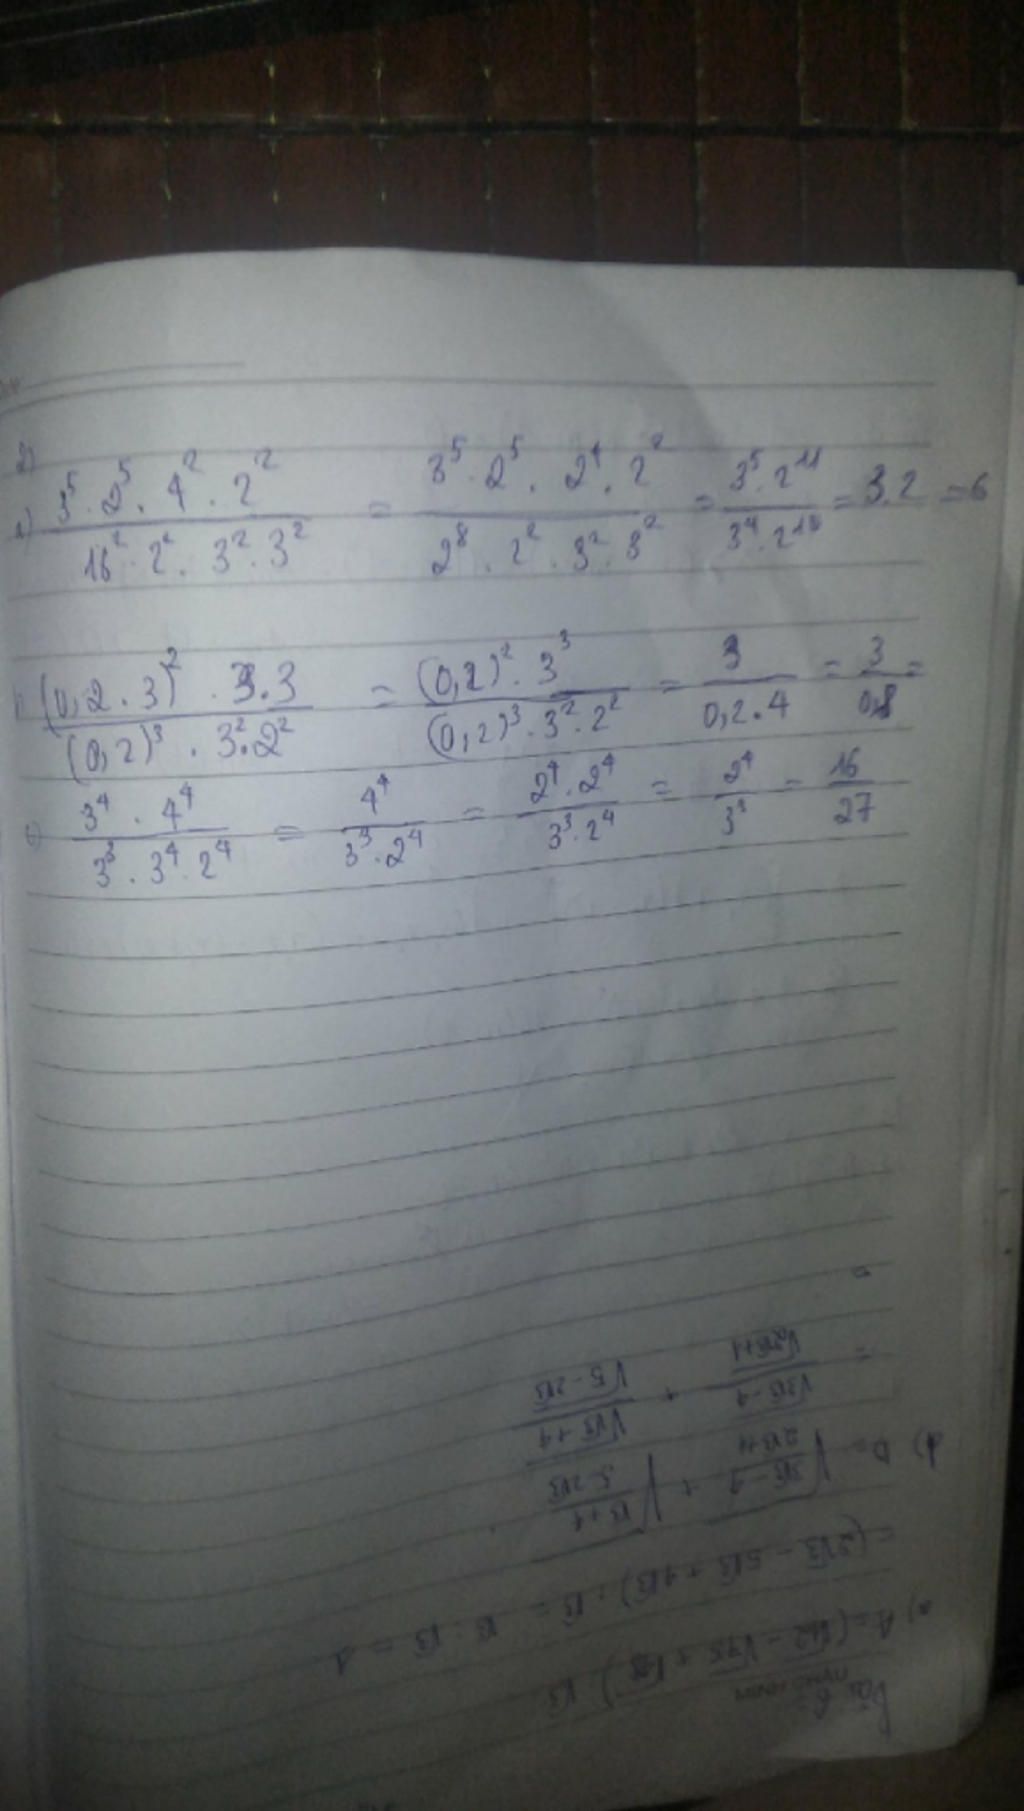 2)
a) 3⁵ . 2⁵ . 4² . 2² / 16² . 2² . 3² . 3² = 3⁵ . 2⁵ . 2⁴ . 2² / 2⁸ . 2² . 3² . 3² = 3⁵ . 2¹¹ / 3⁴ . 2¹⁰ = 3.2 = 6
(0,2 . 3)² . 3.3 / (0,2)³ . 3² . 2² = (0,2)² . 3³ / (0,2)³ . 3² . 2² = 3 / 0,2 . 4 = 3 / 0,8 =
c) 3⁴ . 4⁴ / 3³ . 3⁴ . 2⁴ = 4⁴ / 3³ . 2⁴ = 2⁴ . 2⁴ / 3³ . 2⁴ = 2⁴ / 3³ = 16 / 27
Bài 6
a) A = (√12 - √75 + √48) : √3
= (2√3 - 5√3 + 4√3) : √3 = √3 : √3 = 1